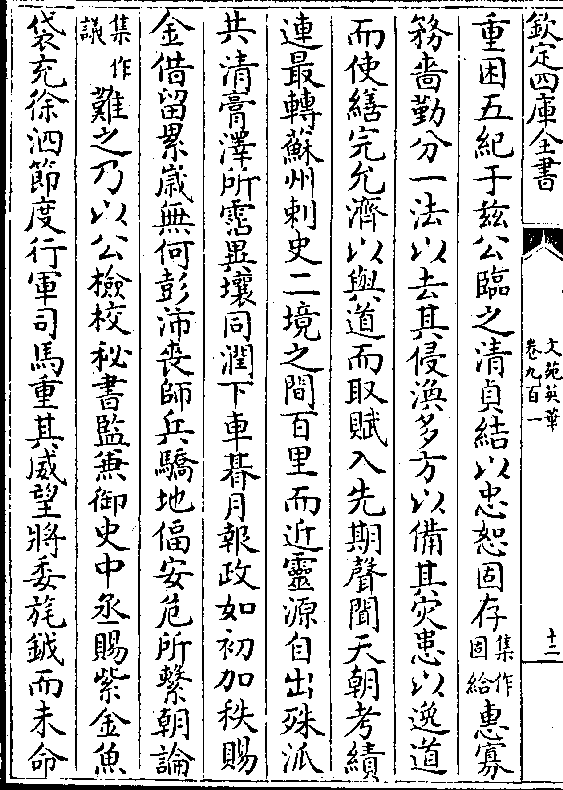 欽定四庫全書
文苑英華
卷九百一
十三
重困五紀于茲公臨之清貞結以忠恕固存集作固給惠寡
務嗇勤分一法以去其侵漁多方以備其灾患以逸道
而使繕完允濟以輿道而取賦入先期聲聞天朝考績
連最轉蘇州刺史二境之間百里而近靈源自出殊派
共清膏澤所霑異壤同潤下車朞月報政如初加秩賜
金借留累嵗無何彭沛喪師兵驕地偪安危所繫朝論
集作議難之乃以公檢校秘書監兼御史中丞賜紫金魚
袋充徐泗節度行軍司馬重其威望將委旄鉞而未命